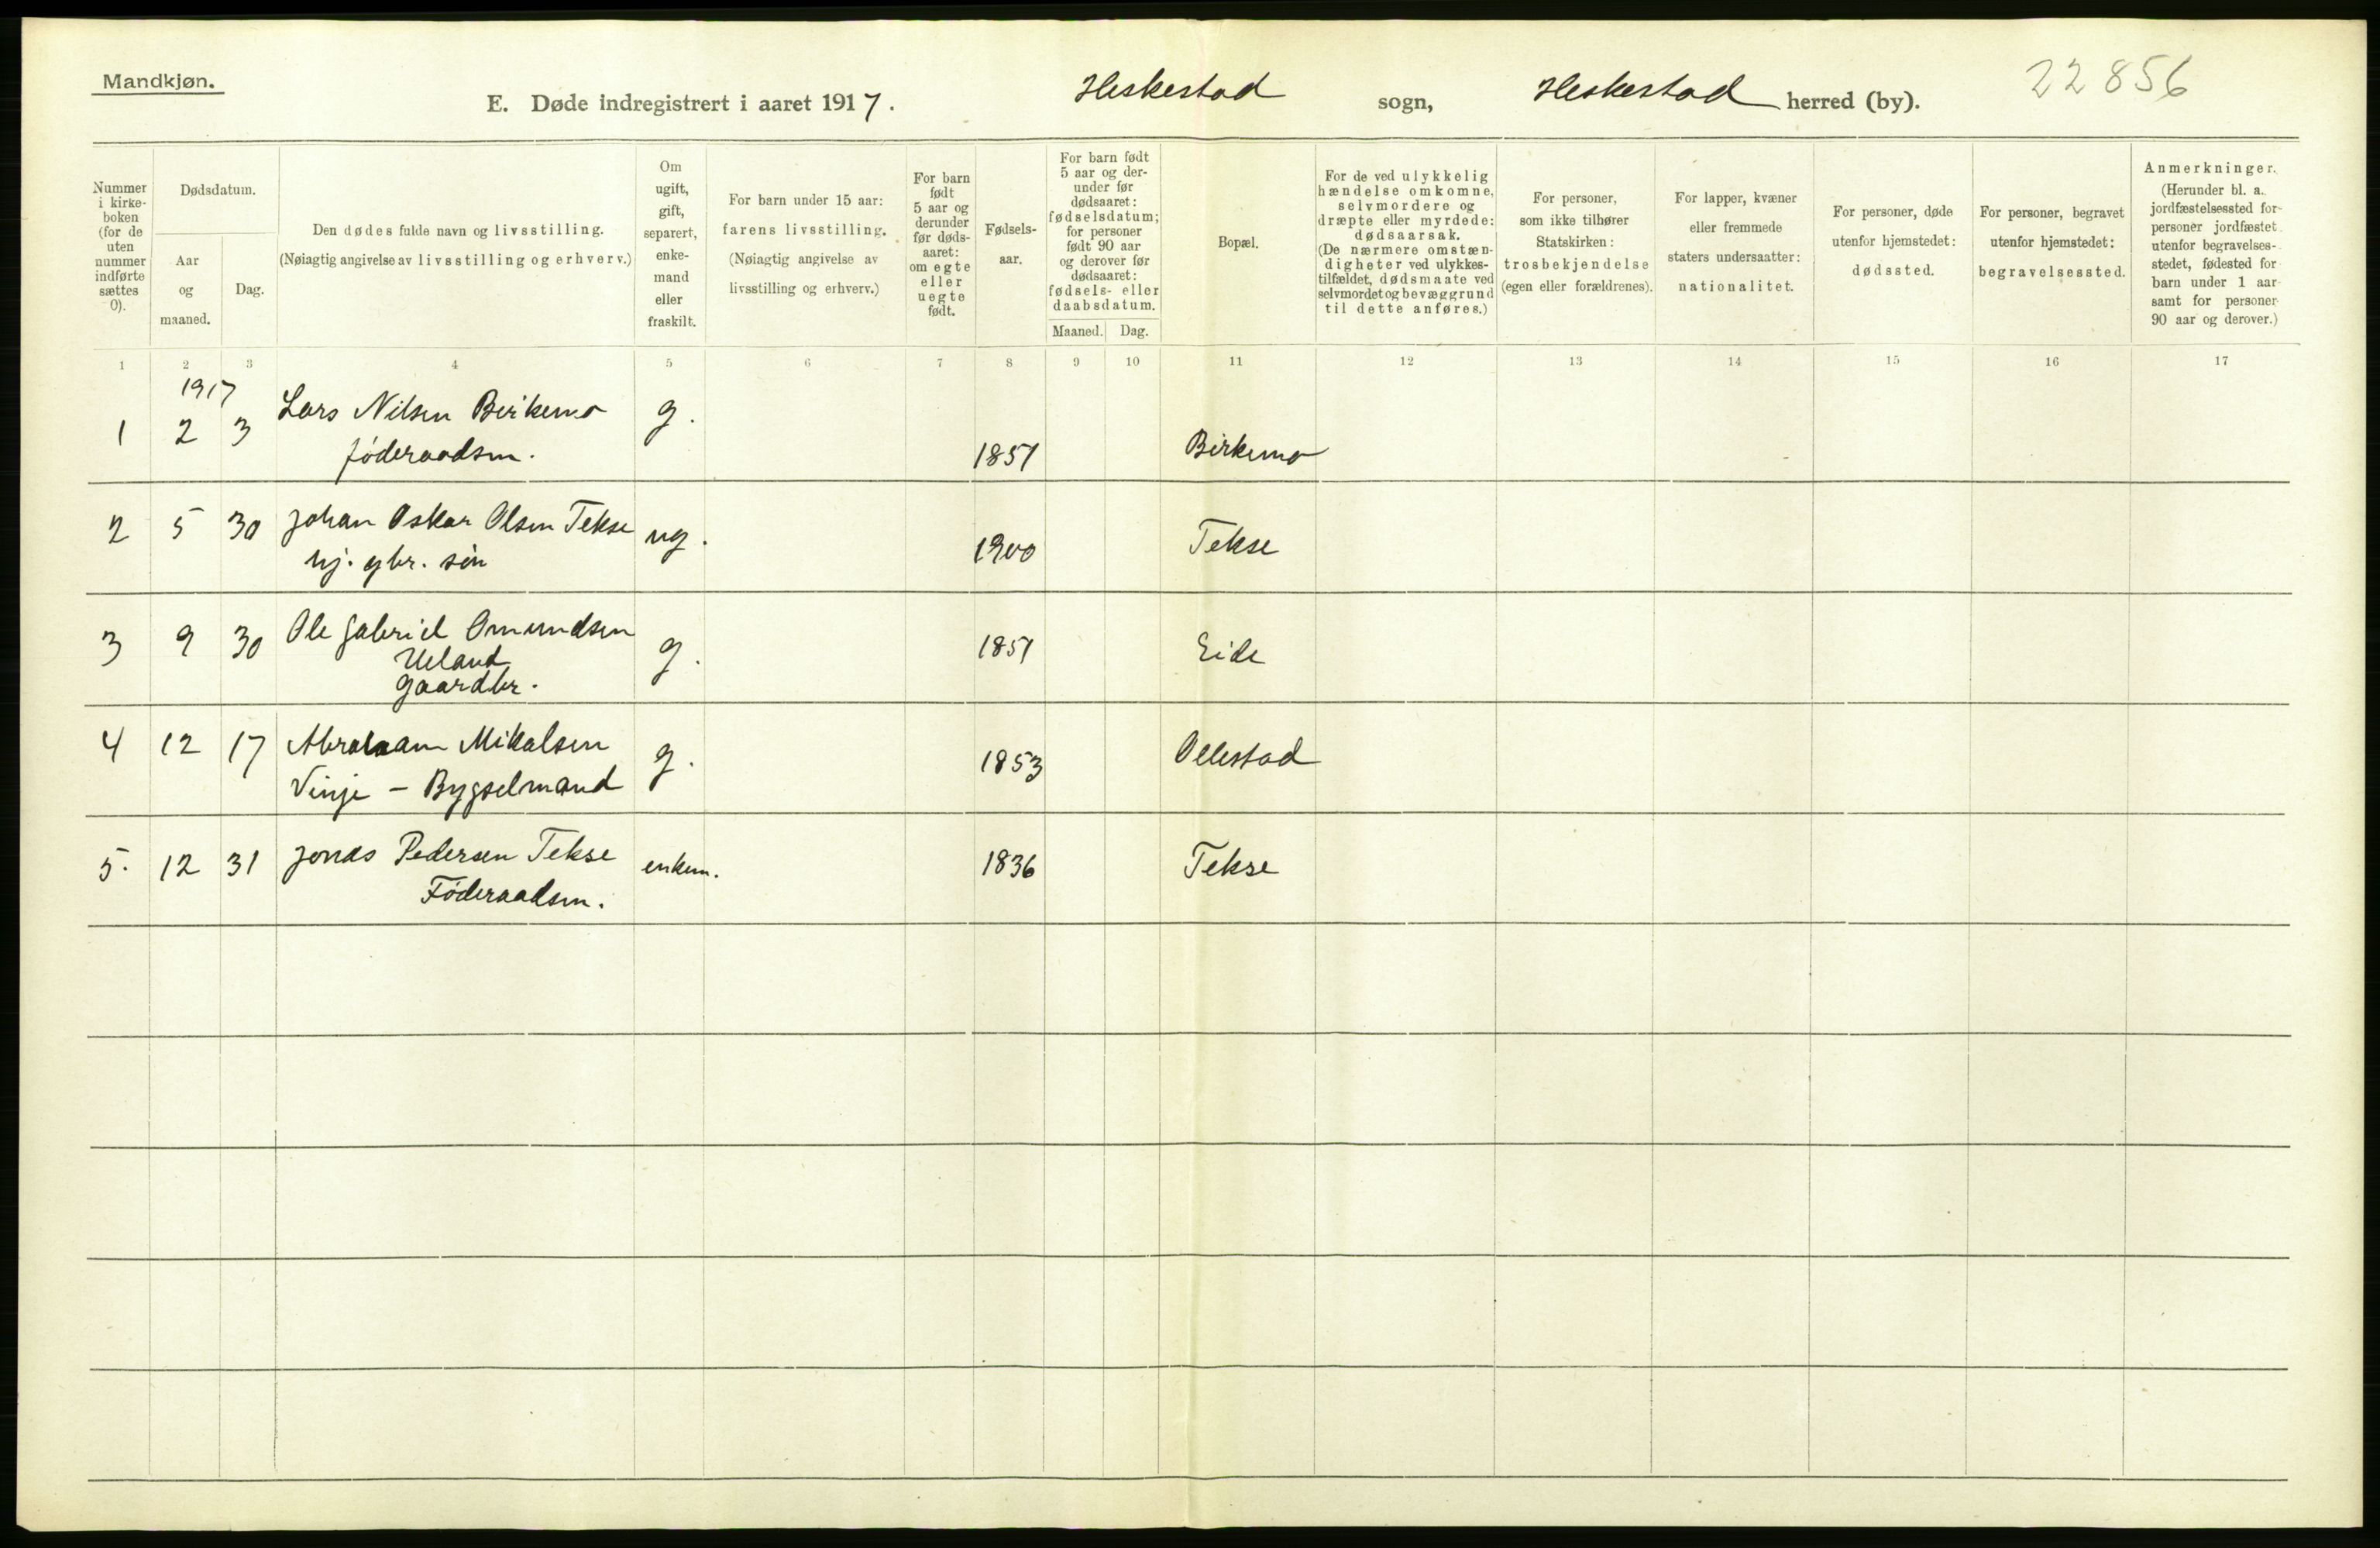 Mandkjøn.
E. Døde indregistrert i aaret 1917. Heskestad sogn, Heskestad herred (by). 22856
Nummer i kirke-boken (for de uten nummer indførte sættes 0).
Dødsdatum.
Aar og maaned.
Dag.
Den dødes fulde navn og livsstilling.
(Nøiagtig angivelse av livsstilling og erhverv.)
Om ugift, gift, separert, enke-mand eller fraskilt.
For barn under 15 aar:
farens livsstilling.
(Nøiagtig angivelse av
livsstilling og erhverv.)
For barn født 5 aar og derunder før døds-aaret: om egte eller uegte født.
Fødsels-aar.
For barn født 5 aar og der-under før dødsaaret: fødselsdatum; for personer født 90 aar og derover før dødsaaret: fødsels- eller daabsdatum.
Maaned. Dag.
Bopæl.
For de ved ulykkelig hændelse omkomne, selvmordere og dræpte eller myrdede: dødsaarsak. (De nærmere omstæn-digheter ved ulykkes-tilfældet, dødsmaate ved selvmordet og bevæggrund til dette anføres.)
For personer, som ikke tilhører Statskirken: trosbekjendelse (egen eller forældrenes).
For lapper, kvæner eller fremmede staters undersaatter: nationalitet.
For personer, døde utenfor hjemstedet: dødssted.
For personer, begravet utenfor hjemstedet: begravelsessted.
Anmerkninger. (Herunder bl. a. jordfæstelsessted for personer jordfæstet utenfor begravelses-stedet, fødested for barn under 1 aar samt for personer 90 aar og derover.)
1 2 3 4 5 6 7 8 9 10 11 12 13 14 15 16 17
1917
1 2 3 Lars Nilsen Birkemo g.
føderaadsm. 1851 Birkemo
2 5 30 Johan Oskar Olsen Tekse ug. 1900 Tekse
hj. gbr. søn
3 9 30 Ole Gabriel Omundsen g. 1851 Eide
Ueland
Gaardbr.
4 12 17 Abraham Mikalsen g. 1853 Ollestad
Vinje - Bygselmand
5. 12 31 Jonas Pedersen Tekse enkem. 1836 Tekse
Føderaadsm.